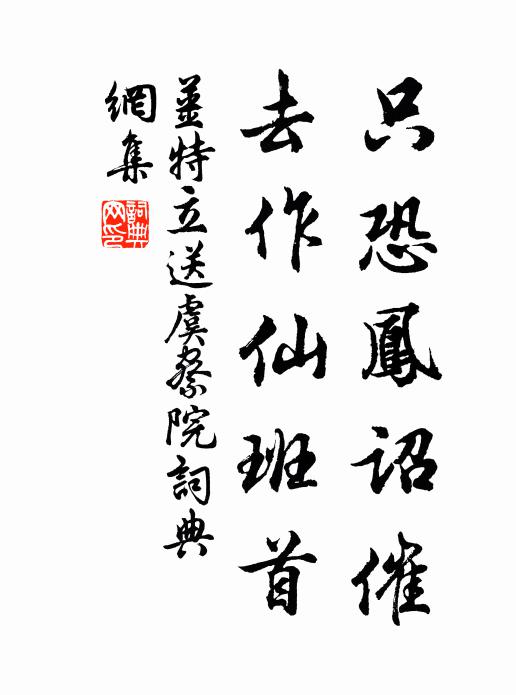 只恐鳳詔催
去作仙班首
姜特立送虞察院詞典
網集
詞典網印